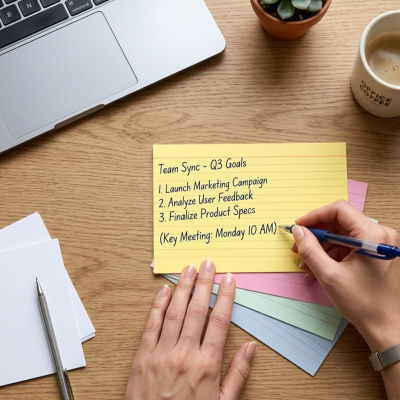 Team Sync - Q3 Goals
1. Launch Marketing Campaign
2. Analyze User Feedback
3. Finalize Product Specs
(Key Meeting: Monday 10 AM)
OFFICE
COFFEE